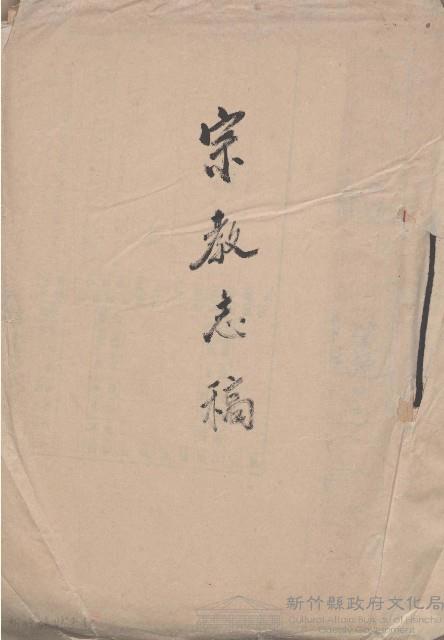 宗教志稿
新竹縣政府文化局
Cultural Affairs Bureau of Hsinchu
County Government